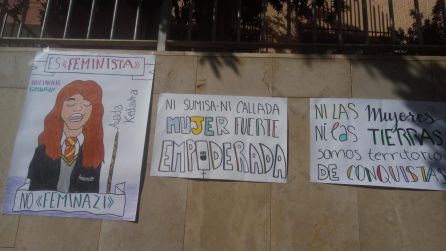 ES «FEMINISTA»
Avada
Kedavra
NO «FEMINAZI»
NI SUMISA-NI CALLADA
MUJER FUERTE
EMPODERADA
NI LAS Mujeres
NI las TIERRAS
somos territorio
DE CONQUISTAS